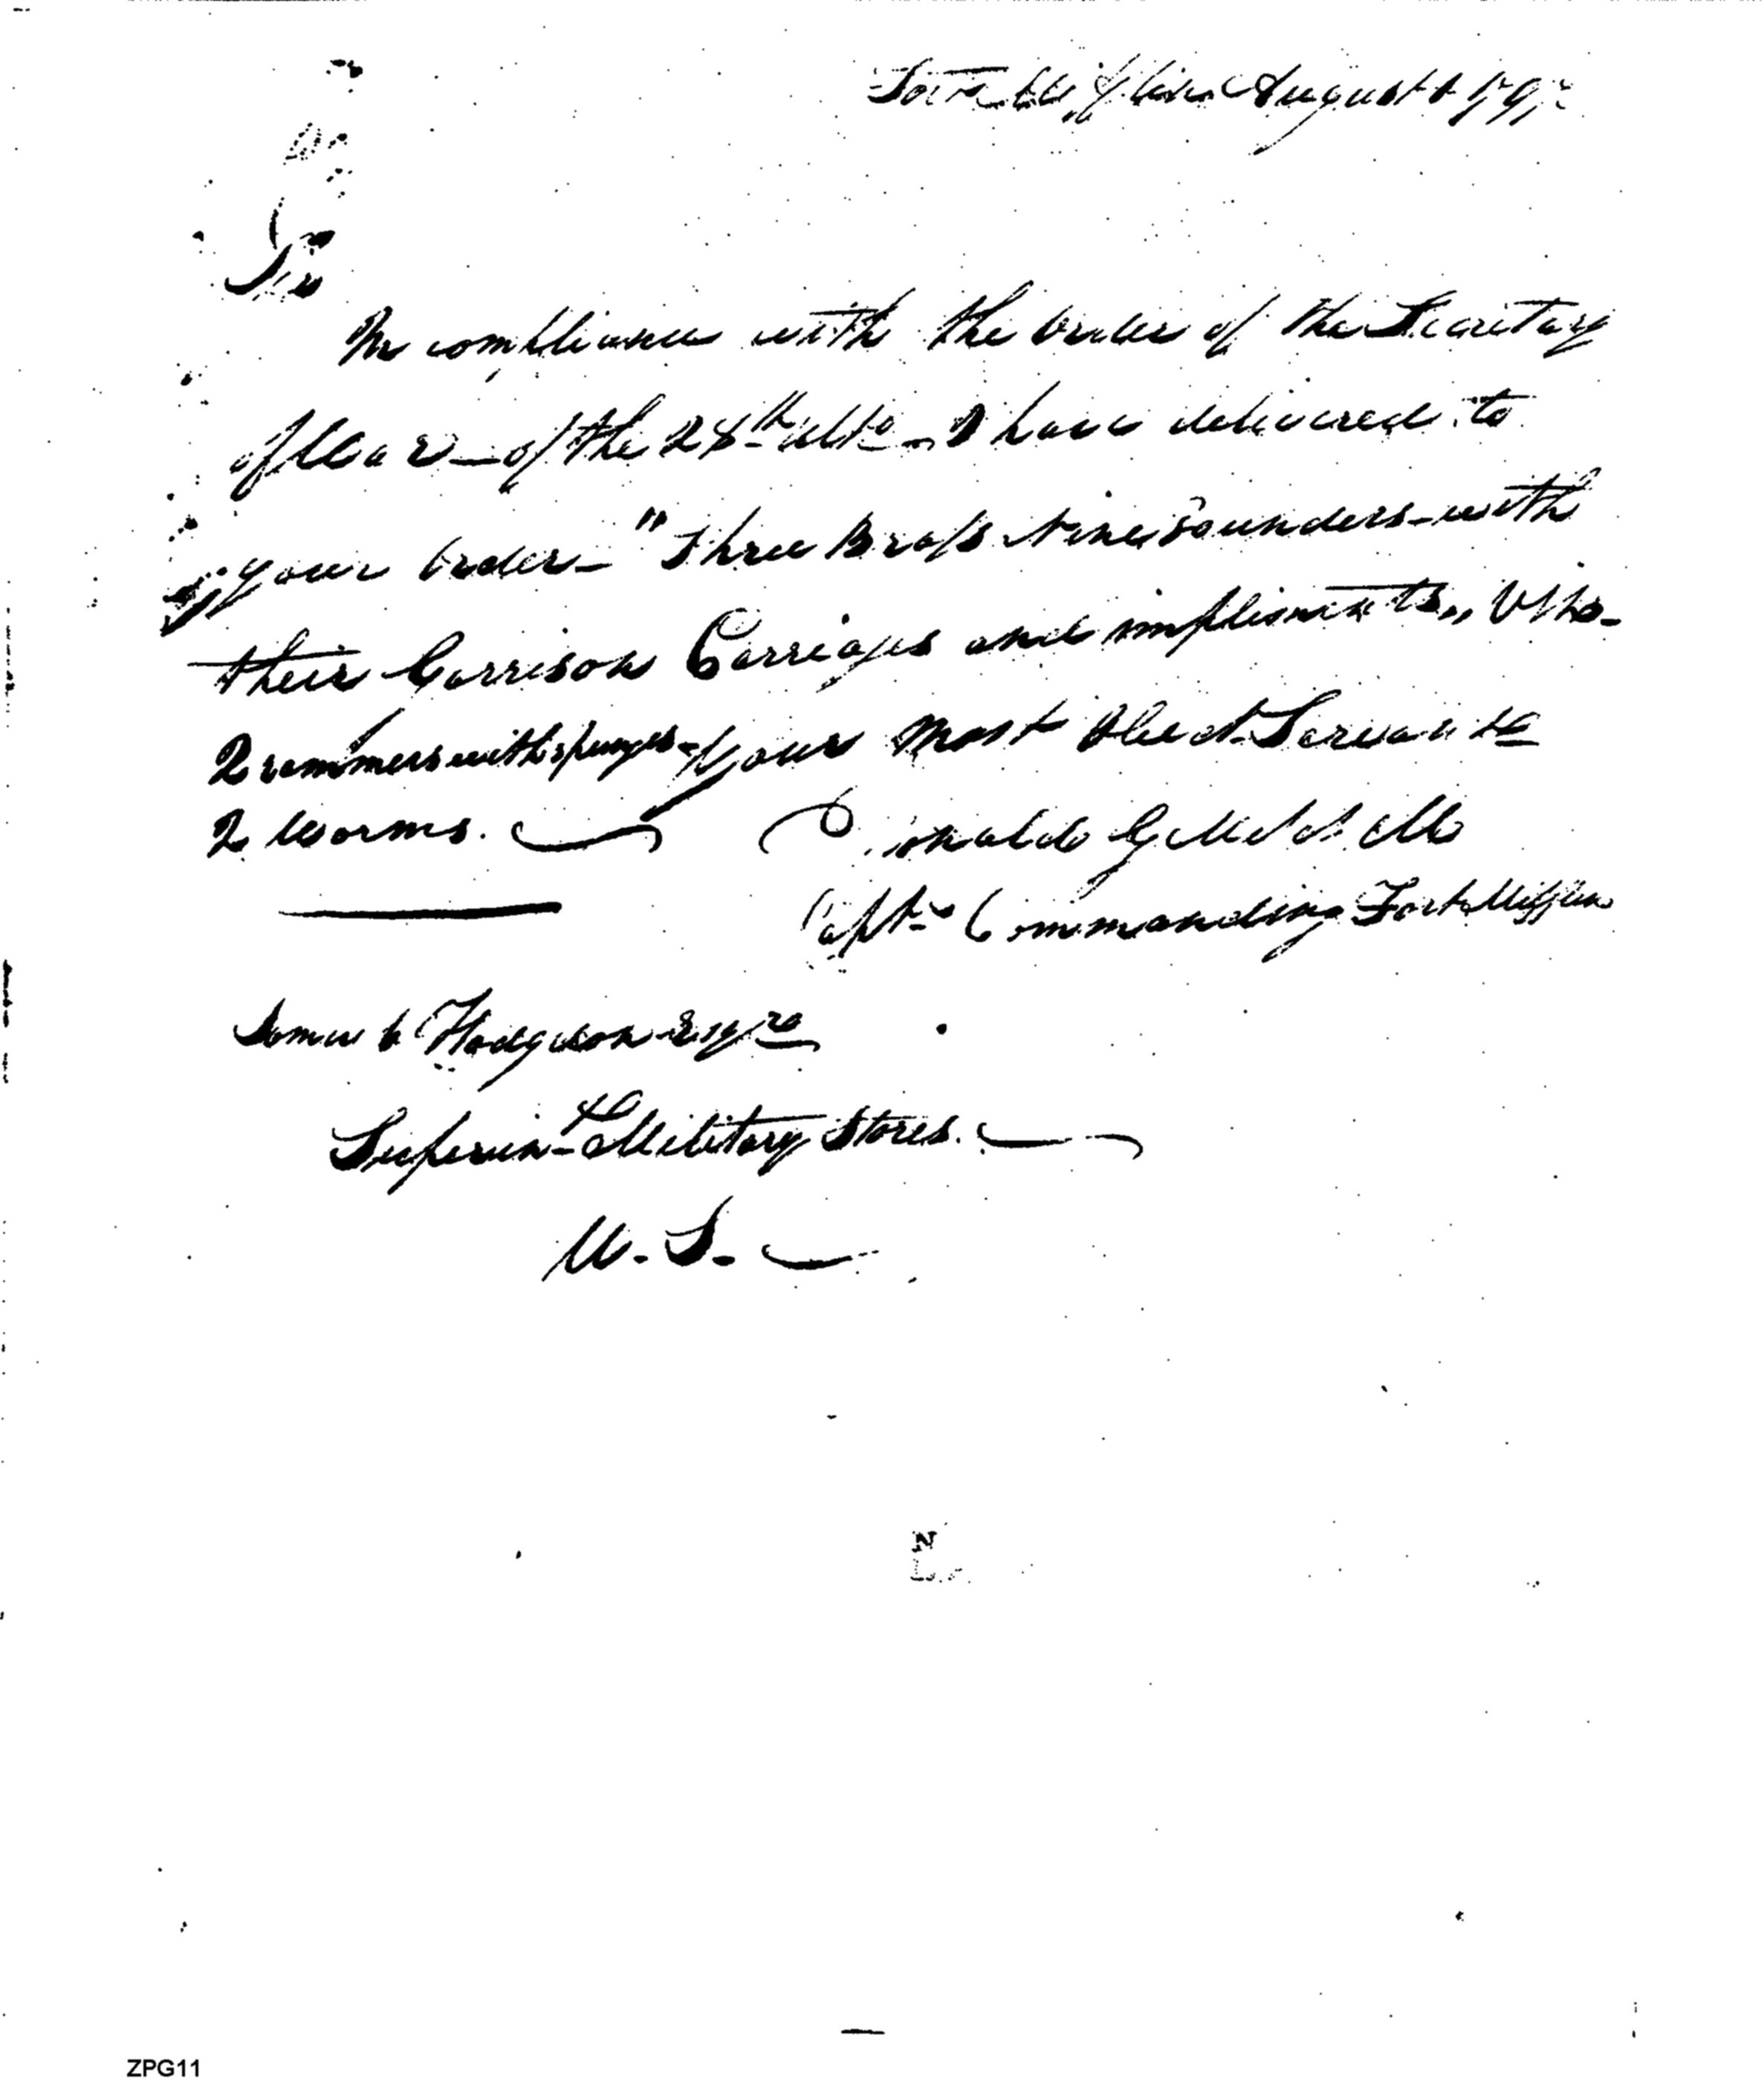 Fort Mifflin August 1 179
Sir
In compliance with the order of the Secretary
of War - of the 28th ulto - I have delivered to
your order - "Three Brass Nine Pounders - with
their Garrison Carriages and implements,, Viz.
2 rammers with spunges - Your Most Obedt. Servant
2 Worms. Donald G Mitchell
Captn Commanding Fort Mifflin
Samuel Hodgdon Esqre
Superint Military Stores.
U. S.
N
ZPG11